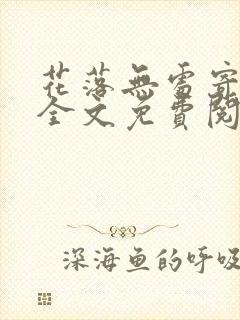 花落無雪寄
全文免費閱
深海鱼的呼吸